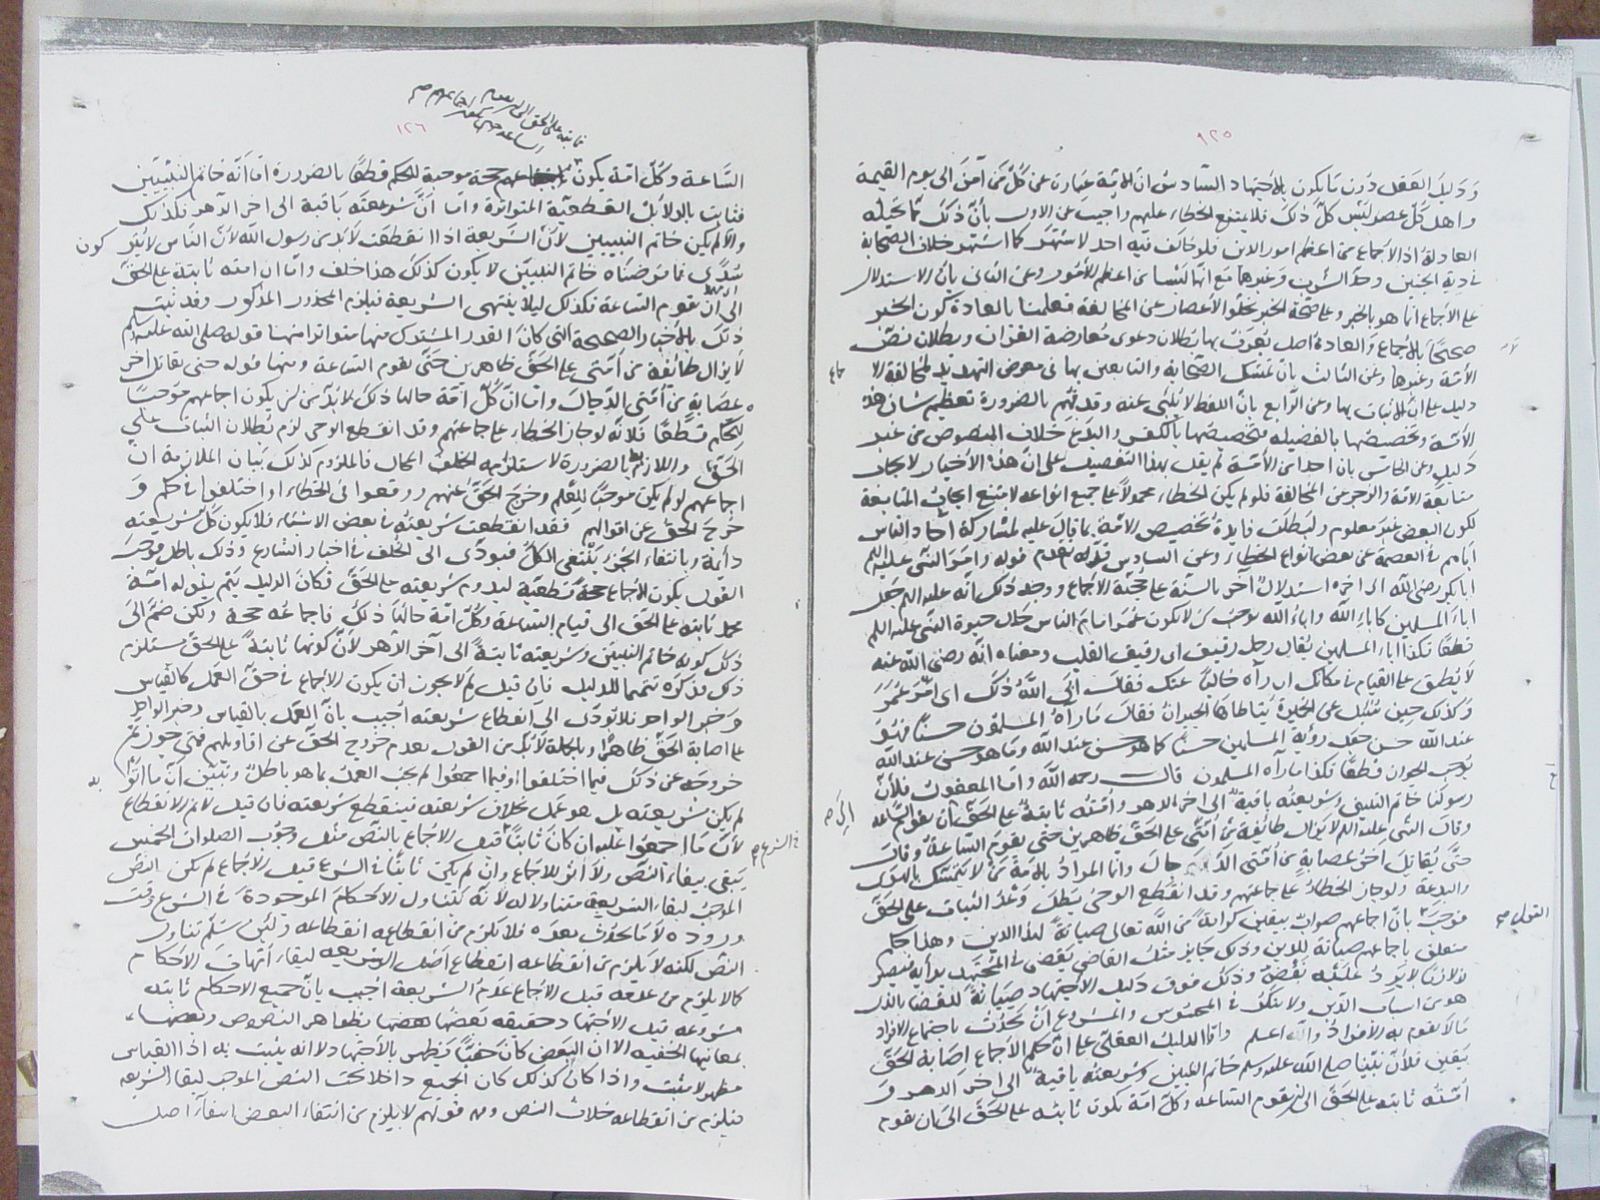 ١٢٥
ودليل العقل دون ما يكون بالاجتهاد السادس ان الامة عبارة عن كل من آمن الى يوم القيمة
واهل كل عصر ليس كل ذلك فلا يمتنع الخطاء عليهم واجيب عن الاول بأن ذلك مما تحيله
العادة اذ الاجماع من اعظم امور الدين فلو خالف فيه احد لاشتهر كما اشتهر خلاف الصحابة
في دية الجنين وحد الشرب وغيرها مع انها ليست من اعظم الامور وعن الثاني بان الاستدلال
على الاجماع انما هو بالخبر وعلى صحة الخبر بخلو الاعصار عن المخالفة فعلمنا بالعادة كون الخبر
صحيحا بالاجماع والعادة اصل يعرف بها بطلان دعوى معارضة القرآن وبطلان نص
الامة وغيرها وعن الثالث بان تمسك الصحابة والتابعين بها في معرض التهديد لمخالفة الاجماع
دليل على ان الاثبات بها وعن الرابع بان اللفظ لا ينبئ عنه وقد فهم بالضرورة تعظيم شان هذه
الامة وتخصيصها بالفضيلة وتخصيصها بالكفر والبدع خلاف المنصوص من غير
دليل وعن الخامس بان احدا من الأمة لم يقل بهذا التفصيل على ان هذه الأخبار لايجاب
متابعة الامة والزجر عن المخالفة فلو لم يكن الخطاء محمولا على جميع انواعه لامتنع ايجاب المتابعة
لكون البعض غير معلوم ولبطلت فايدة تخصيص الامة بما قال عليه لمشاركة آحاد الناس
اياهم في العصمة عن بعض انواع الخطاء وعن السادس قوله وامر النبي عليه السلم
ابا بكر رضي الله الى آخره استدلال آخر بالسنة على حجية الاجماع ووجه ذلك انه عليه السلم جعل
اباء المسلمين كاباء الله واباء الله يوجب ان لا يكون عمر اماما للناس خلال حيوة النبي عليه السلم
قطعا فكذا اباء المسلمين يقال رجل رقيق اى رقيق القلب ومعناه انه رضي الله عنه
لا يطيق على القيام في مكانك ان رآه خاليا عنك فقال ابى الله ذلك اى امر عمر
وكذلك حين سئل عن الخميرة يتعاطاها الجيران فقال ما رآه المسلمون حسنا فهو
عند الله حسن جعل رؤية المسلمين حسنا كما هو حسن عند الله وما هو حسن عند الله
يوجب الجواز قطعا فكذا ما رآه المسلمون قال رحمه الله واما المعقول فلأن
رسولنا خاتم النبيين وشريعته باقية الى آخر الدهر وامته ثابتة على الحق الى ان تقوم الساعة
وقال النبي عليه السلم لا يزال طائفة من امتى على الحق ظاهرين حتى يقوم الساعة وقال
حتى يقاتل آخر عصابة من امتى الدجال وانما المراد بالامة من لا يتمسك بالهوى
والبدعة ولو جاز الخطاء على جماعتهم وقد انقطع الوحى بطل وعد الثبات على الحق
فوجب القول بان اجماعهم صواب بيقين كرامة من الله تعالى صيانة لهذا الدين وهذا حكم
متعلق باجماعهم صيانة للدين وذلك جايز مثل القاضي يقضى في المجتهد برأيه فيصير
لازما لا يرد عليه نقض وذلك فوق دليل الاجتهاد صيانة للقضاء بالذى
هو من اسباب الدين ولا ينكر في المحسوس والمشروع ان يحدث باجتماع الافراد
ما لا يقوم به الافراد والله اعلم واما الدليل العقلي على ان حكم الاجماع اصابة الحق
بيقين فلأن نبينا صلى الله عليه وسلم خاتم النبيين وشريعته باقية الى آخر الدهر و
امته ثابته على الحق الى ان يقوم الساعه وكل امة يكون ثابته على الحق الى ان يقوم
الى ص
القول ص
١٢٦
ثابته على الحق الى
الساعة وكل امة يكون حجة موجبة للحكم قطعًا بالضرورة اما انه خاتم النبيين
فثابت بالدلايل القطعية المتواترة واما ان شريعته باقية الى اخر الدهر فكذلك
والا لم يكن خاتم النبيين لان الشريعة اذا انقطعت لا بد من رسول الله لان الناس لا يتركون
سدى فما فرضناه خاتم النبيين لا يكون كذلك هذا خلف واما ان امته ثابتة على الحق
الى ان تقوم الساعة فكذلك ليلا ينتهى الشريعة فيلزم المحذور المذكور وقد ثبت
ذلك بالأخبار الصحيحة التى كان القدر المشترك منها متواترا منها قوله صلى الله عليه وسلم
لا يزال طائفة من امتى على الحق ظاهرين حتى يقوم الساعة ومنها قوله حتى يقاتل آخر
عصابة من امتى الدجال واما ان كل امة حالها ذلك لا بد من ان يكون اجماعهم موجبا
للحكم قطعا فلانه لو جاز الخطاء على جماعتهم وقد انقطع الوحى لزم بطلان الثبات على
الحق واللازم بط بالضرورة لاستلزامه الخلف المحال فالملزوم كذلك بيان الملازمة ان
اجماعهم لو لم يكن موجبا للعلم وخرج الحق عنهم ووقعوا في الخطاء او اختلفوا في حكم و
خرج الحق عن اقوالهم فقد انقطعت شريعته في بعض الاشياء فلا يكون كل شريعته
دائمة وبانتفاء الجزء ينتفى الكل فيودى الى الخلف في اخبار الشارع وذلك باطل فوجب
القول بكون الاجماع حجة قطعية ليدوم شريعته على الحق فكان الدليل يتم بقوله امة
محمد ثابته على الحق الى قيام الساعة وكل امة حالها ذلك فاجماعه حجة ولكن ضم الى
ذلك كونه خاتم النبيين وشريعته ثابتة الى آخر الدهر لأن كونها ثابتة على الحق مستلزم
ذلك فذكره تتميما للدليل فان قيل لم لا يجوز ان يكون الاجماع في حق العمل كالقياس
وخبر الواحد فلا تودى الى انقطاع شريعته اجيب بان العمل بالقياس وخبر الواحد
على اصابة الحق ظاهرا وبالجملة لا بد من القول بعدم خروج الحق عن اقاويلهم فمتى جوز تم
خروجه عن ذلك فيما اختلفوا او فيما اجمعوا لم يجب العمل بما هو باطل وتبين ان ما اتوا به
لم يكن شريعته بل هو عمل بخلاف شريعته فينقطع شريعته فان قيل لا نم الانقطاع
لان ما اجمعوا عليه ان كان ثابتا في الشرع قبل الاجماع بالنص مثل وجوب الصلوات الخمس
يبقى ببقاء النص ولا أثر للاجماع وان لم يكن ثابتا في الشرع قبل الاجماع لم يكن النص
الموجب لبقاء الشريعة متناولا له لأنه يتناول الاحكام الموجودة في الشرع وقت
وروده لا ما يحدث بعده فلا يلزم من انقطاعه انقطاعه ولئن سلم تناول
النص لكنه لا يلزم من انقطاعه انقطاع اصل الشريعه لبقاء امهات الاحكام
كالا يلزم من عدمه قبل الاجماع عدم الشريعة اجيب بان جميع الاحكام ثابتة
مشروعه قبل الاجتهاد حقيقه بعضها بظواهر النصوص وبعضها
بمعانيها الخفيه الا ان البعض كان خفيا فيظهر بالاجتهاد لا انه يثبت به اذ القياس
مظهر لا مثبت واذا كان كذلك كان الجميع داخلا تحت النص الموجب لبقا الشريعه
فيلزم من انقطاعه خلاف النص ومـ قولهم لا يلزم من انتفاء البعض انتفاء اصل